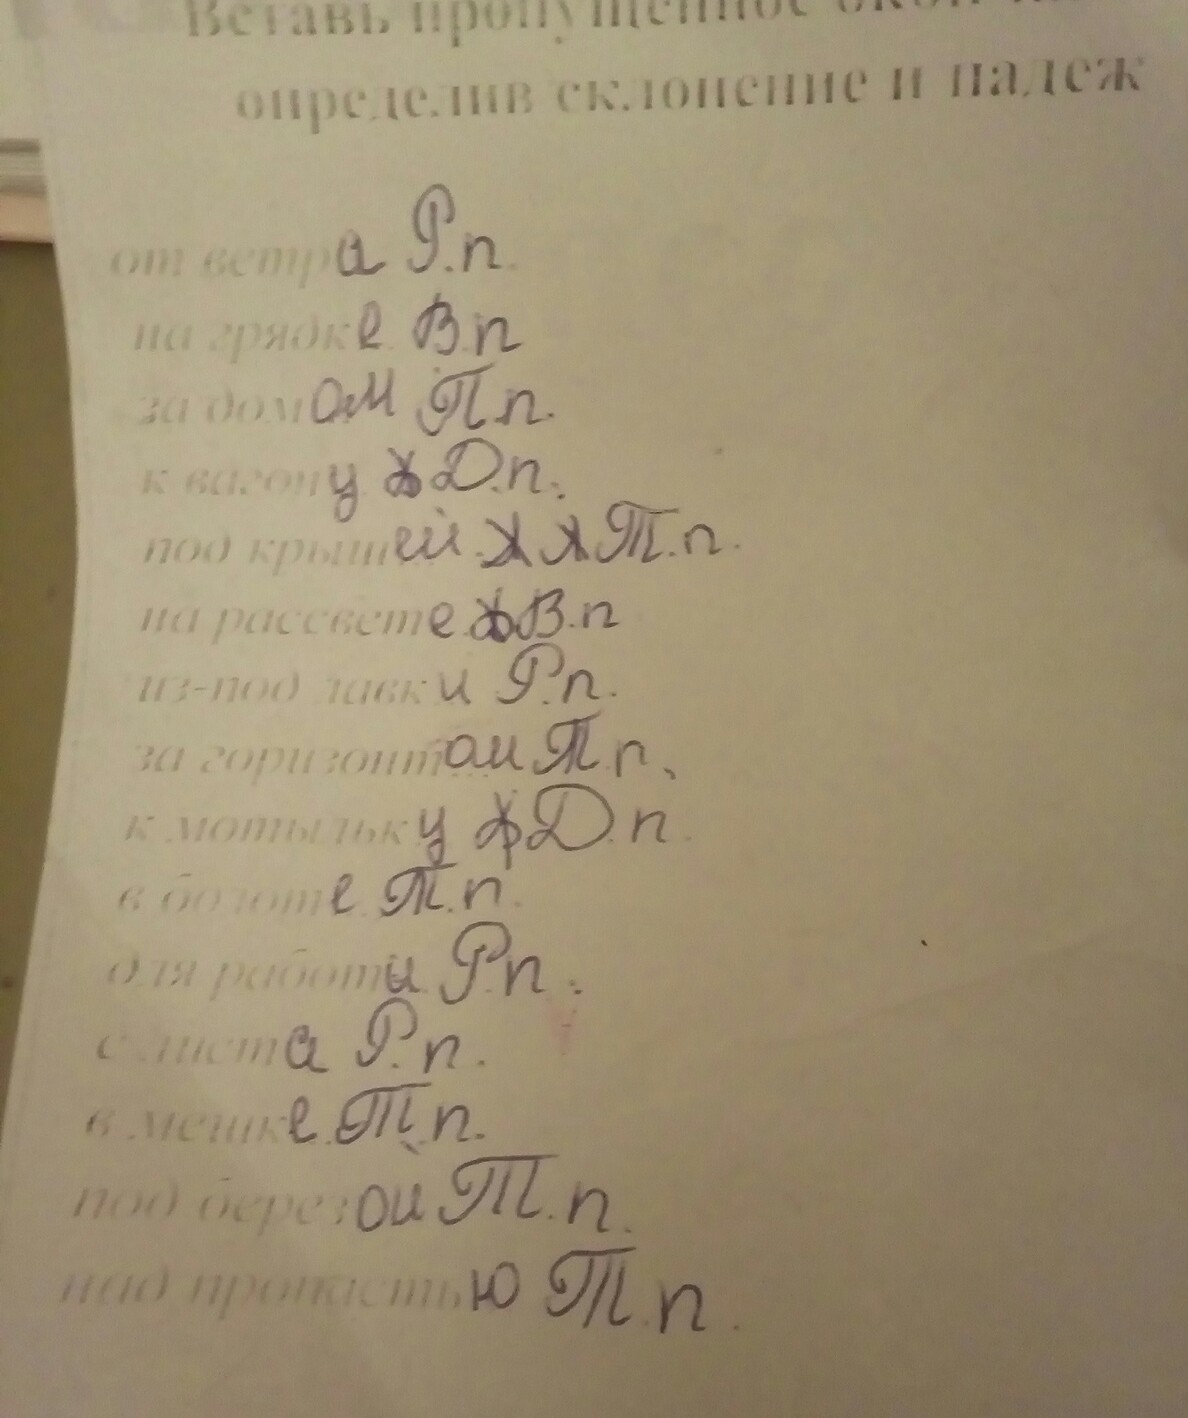 Вставь пропущенное
определив склонение и падеж
от ветра Р.п.
на грядке. В.п
за домом П.п.
к вагону Д.п.
под крышей. Т.п.
на рассвете. В.п
из-под лавки Р.п.
за горизонтом Т.п.
к мотыльку Д.п.
в болоте. Т.п.
для работи. Р.п.
с листа Р.п.
в мешке. Т.п.
под березой Т.п.
над пропастью Т.п.